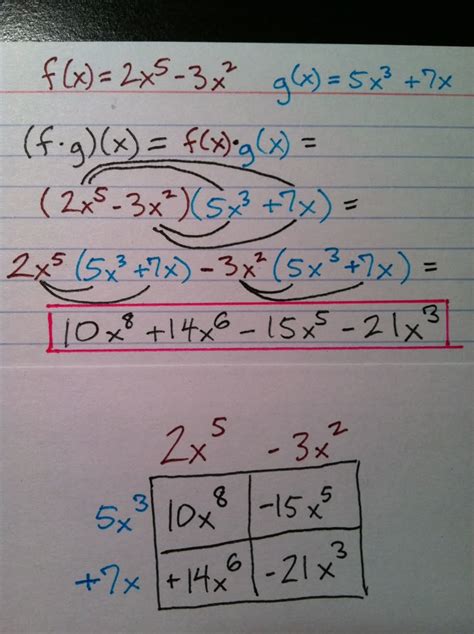 f(x) = 2x⁵ - 3x² g(x) = 5x³ + 7x
(f·g)(x) = f(x)·g(x) =
(2x⁵ - 3x²)(5x³ + 7x) =
2x⁵(5x³ + 7x) - 3x²(5x³ + 7x) =
10x⁸ + 14x⁶ - 15x⁵ - 21x³
2x⁵ - 3x²
5x³ 10x⁸ -15x⁵
+7x +14x⁶ -21x³